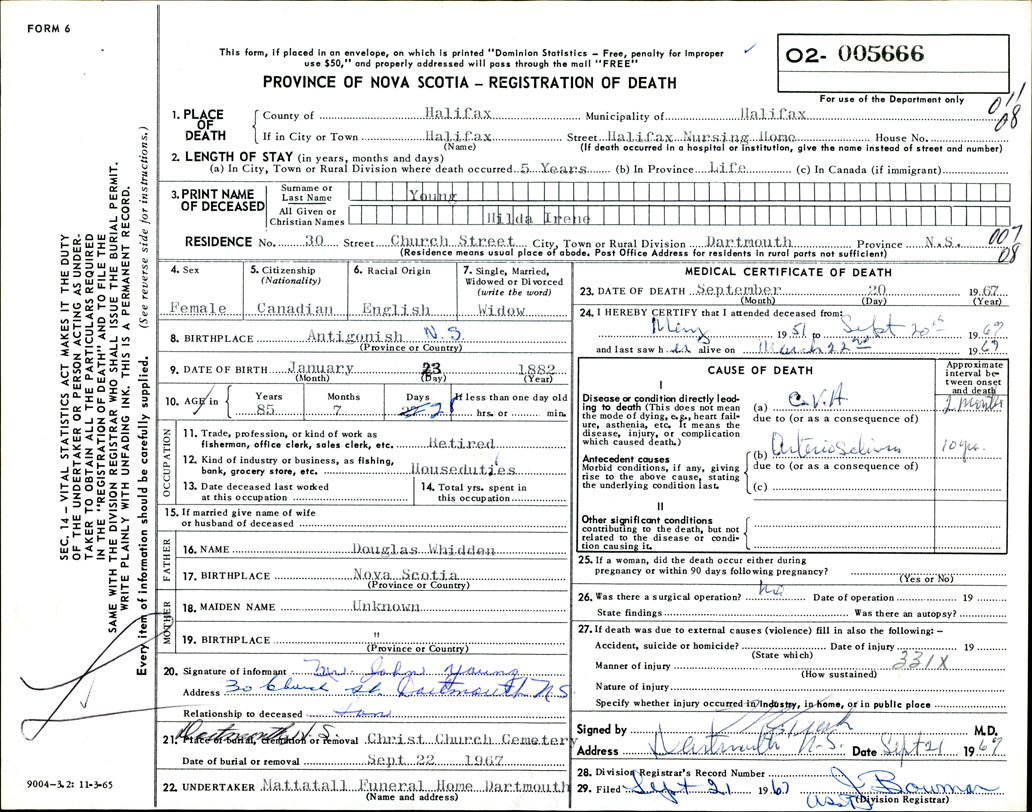 FORM 6
This form, if placed in an envelope, on which is printed "Dominion Statistics – Free, penalty for improper
use $50," and properly addressed will pass through the mail "FREE"
O2- 005666
PROVINCE OF NOVA SCOTIA – REGISTRATION OF DEATH
For use of the Department only
011
08
1. PLACE OF DEATH
County of Halifax Municipality of Halifax
If in City or Town Halifax Street Halifax Nursing Home House No.
(Name) (If death occurred in a hospital or institution, give the name instead of street and number)
2. LENGTH OF STAY (in years, months and days)
(a) In City, Town or Rural Division where death occurred 5 Years (b) In Province Life (c) In Canada (if immigrant)
3. PRINT NAME OF DECEASED
Surname or Last Name Young
All Given or Christian Names Hilda Irene
RESIDENCE No. 30 Street Church Street City, Town or Rural Division Dartmouth Province N.S.
(Residence means usual place of abode. Post Office Address for residents in rural parts not sufficient)
007
08
4. Sex
Female
5. Citizenship
(Nationality)
Canadian
6. Racial Origin
English
7. Single, Married,
Widowed or Divorced
(write the word)
Widow
8. BIRTHPLACE Antigonish N.S.
(Province or Country)
9. DATE OF BIRTH January 23 1882
(Month) (Day) (Year)
10. AGE in
Years Months Days If less than one day old
85 7 28 hrs. or min.
OCCUPATION
11. Trade, profession, or kind of work as
fisherman, office clerk, sales clerk, etc. Retired
12. Kind of industry or business, as fishing,
bank, grocery store, etc. Houseduties
13. Date deceased last worked
at this occupation
14. Total yrs. spent in
this occupation
15. If married give name of wife
or husband of deceased
FATHER
16. NAME Douglas Whidden
17. BIRTHPLACE Nova Scotia
(Province or Country)
MOTHER
18. MAIDEN NAME Unknown
19. BIRTHPLACE "
(Province or Country)
20. Signature of informant John Young
Address 30 Church St. Dartmouth N.S.
Relationship to deceased Son
Dartmouth N.S.
21. Place of burial, cremation or removal Christ Church Cemetery
Date of burial or removal Sept 22 1967
22. UNDERTAKER Mattatall Funeral Home Dartmouth
(Name and address)
MEDICAL CERTIFICATE OF DEATH
23. DATE OF DEATH September 20 1967
(Month) (Day) (Year)
24. I HEREBY CERTIFY that I attended deceased from:
1951 to Sept 20th 1967
and last saw her alive on March 22nd 1967
CAUSE OF DEATH
Approximate
interval be-
tween onset
and death
I
Disease or condition directly lead-
ing to death (This does not mean
the mode of dying, e.g., heart fail-
ure, asthenia, etc. It means the
disease, injury, or complication
which caused death.)
(a) C.V.A. 2 months
due to (or as a consequence of)
Antecedent causes
Morbid conditions, if any, giving
rise to the above cause, stating
the underlying condition last.
(b) 10 yrs.
due to (or as a consequence of)
(c)
II
Other significant conditions
contributing to the death, but not
related to the disease or condi-
tion causing it.
25. If a woman, did the death occur either during
pregnancy or within 90 days following pregnancy?
(Yes or No)
26. Was there a surgical operation? no Date of operation 19
State findings Was there an autopsy?
27. If death was due to external causes (violence) fill in also the following: –
Accident, suicide or homicide? Date of injury 19
(State which) 331X
Manner of injury
(How sustained)
Nature of injury
Specify whether injury occurred in Industry, in home, or in public place
Signed by M.D.
Address Dartmouth N.S. Date Sept 21 1967
28. Division Registrar's Record Number
29. Filed Sept 21 1967 J Bowman
(Division Registrar)
SEC. 14 – VITAL STATISTICS ACT MAKES IT THE DUTY
OF THE UNDERTAKER OR PERSON ACTING AS UNDER-
TAKER TO OBTAIN ALL THE PARTICULARS REQUIRED
IN THE "REGISTRATION OF DEATH" AND TO FILE THE
SAME WITH THE DIVISION REGISTRAR WHO SHALL ISSUE THE BURIAL PERMIT.
WRITE PLAINLY WITH UNFADING INK. THIS IS A PERMANENT RECORD.
Every item of information should be carefully supplied. (See reverse side for instructions.)
9004-3.2: 11-3-65